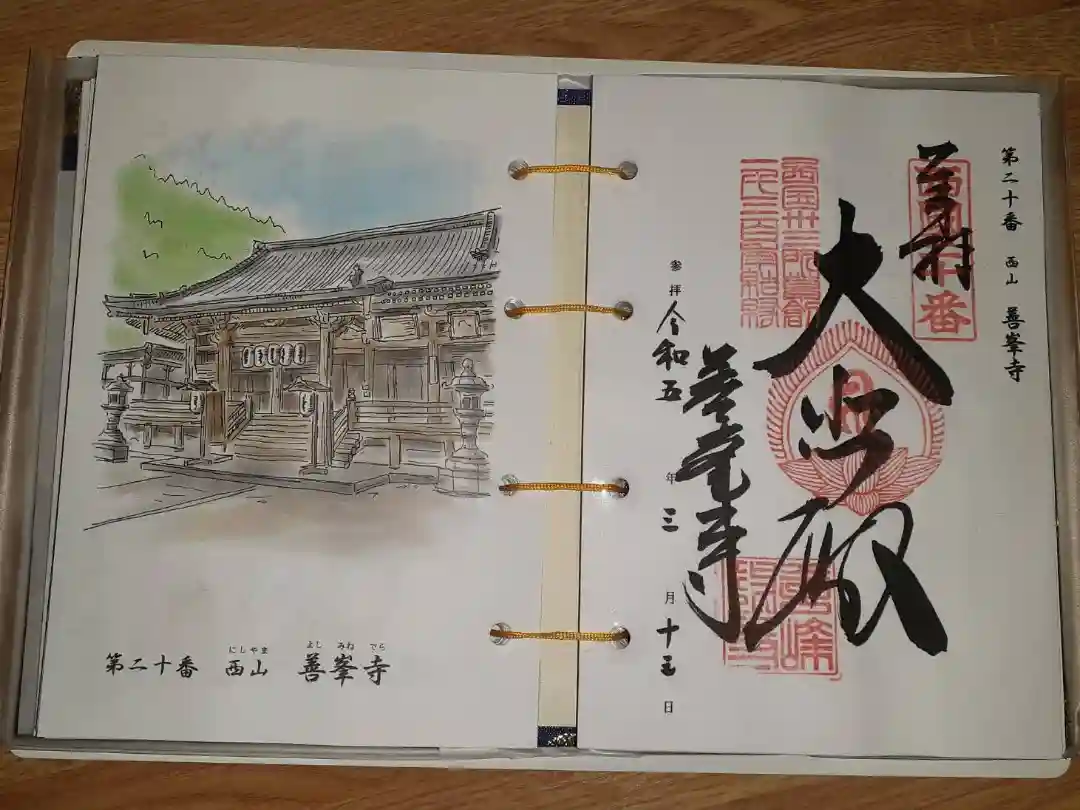 にしやま よしみねでら
第二十番 西山 善峯寺
第二十番 西山 善峯寺
奉拝
西国二十番
大悲殿
西国卅三所草創
一千三百年記念
善峯寺
参拝 令和五年三月十五日